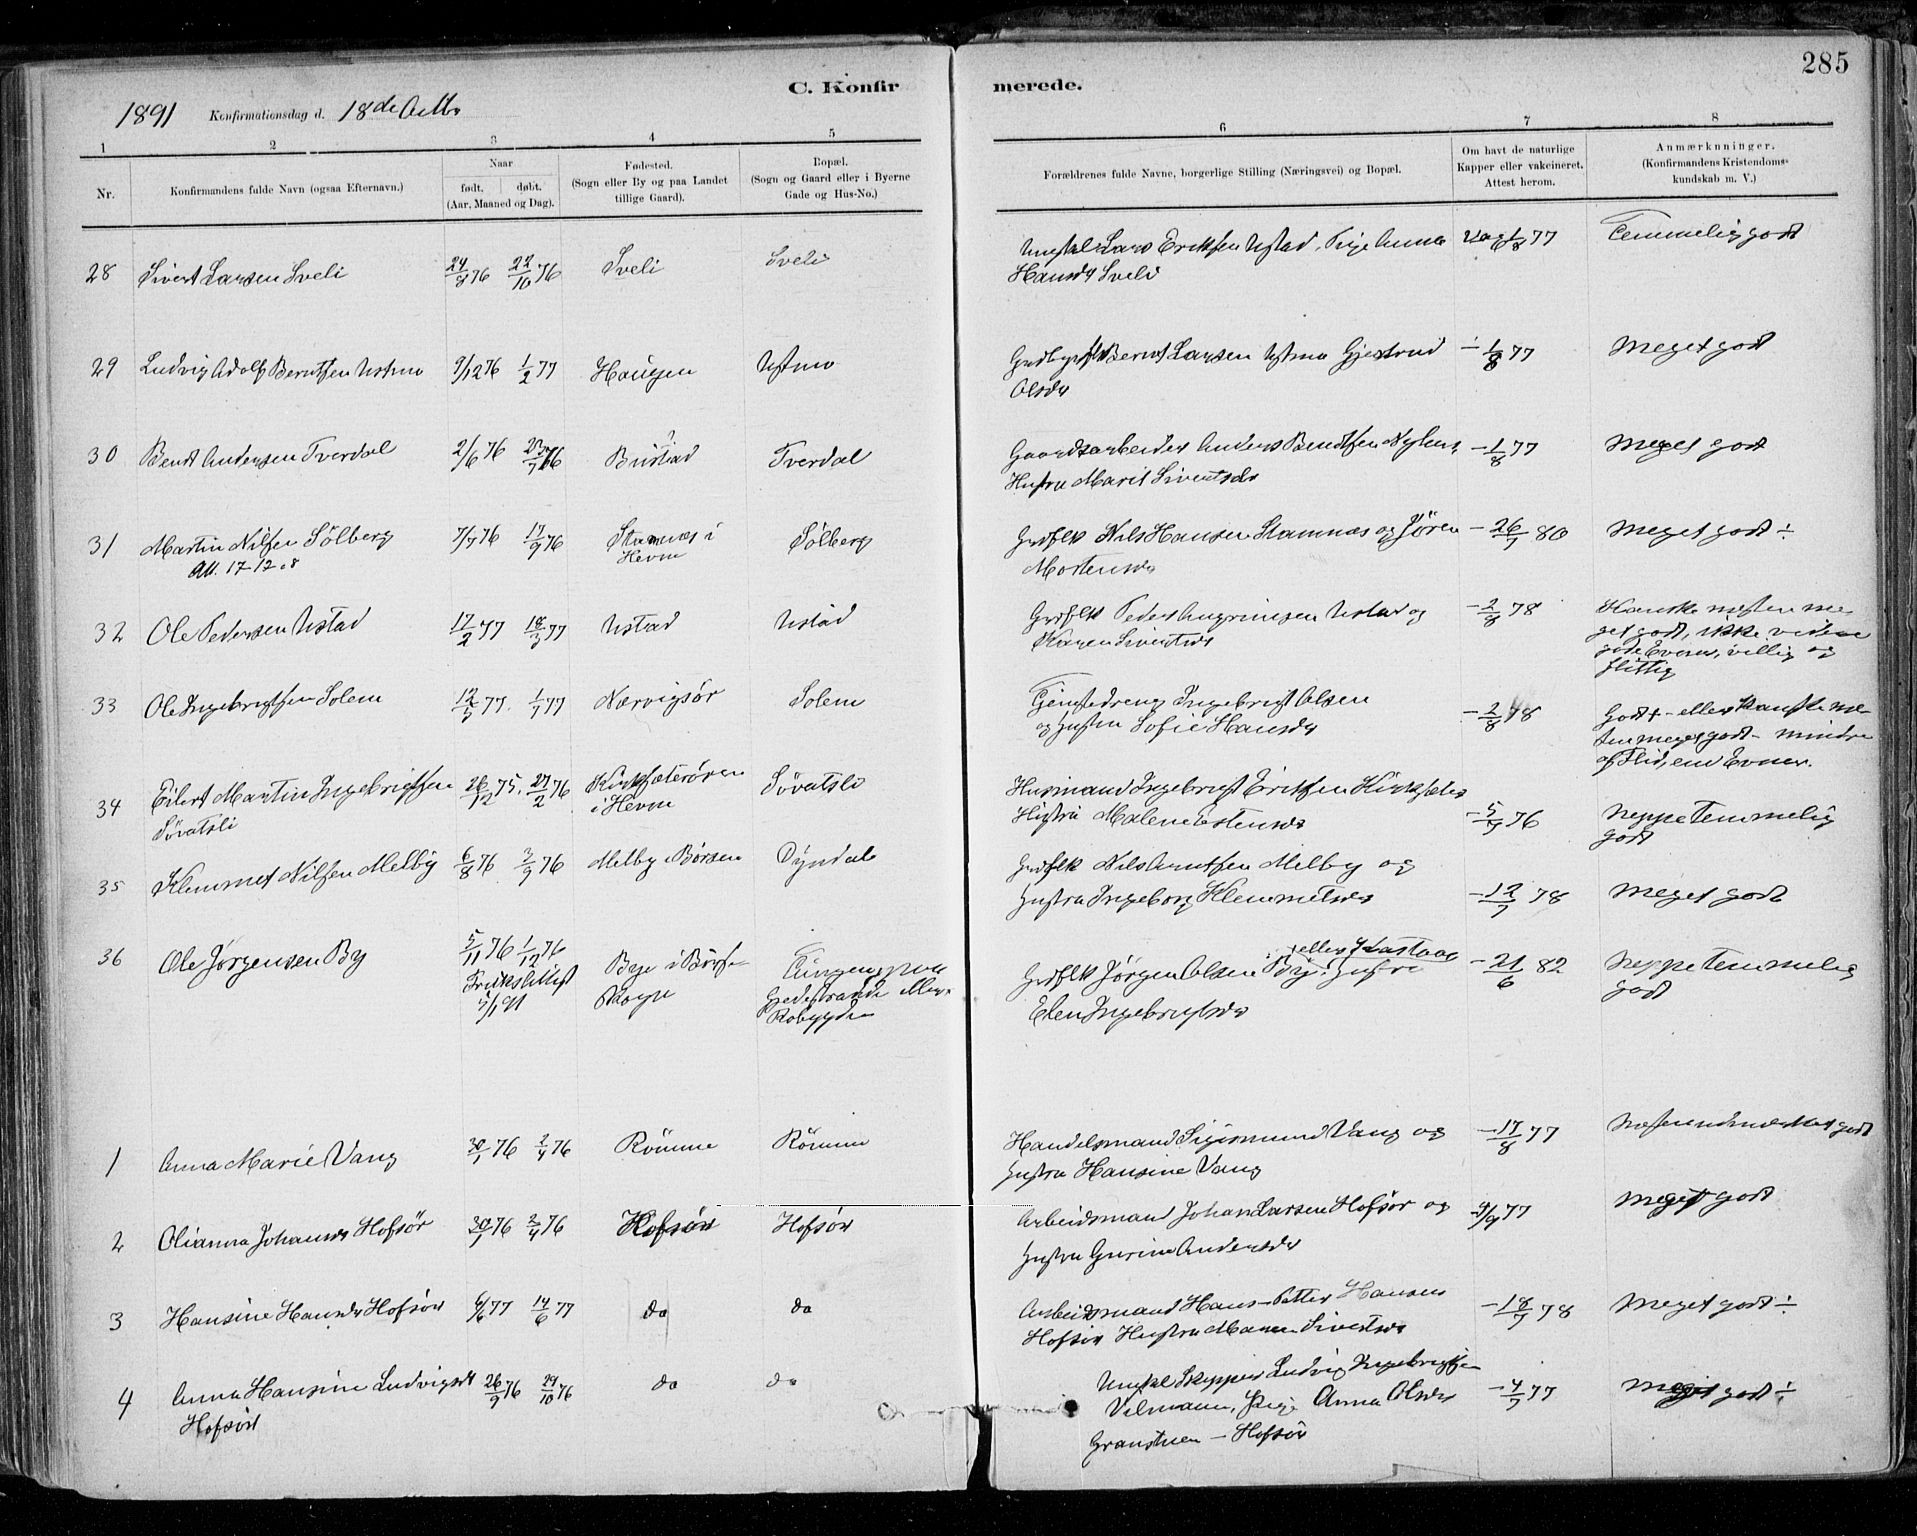 285
C. Konfirmerede.
1891 Konfirmationsdag d. 18de Octbr
1 2 3 4 5 6 7 8
Nr. Konfirmandens fulde Navn (ogsaa Efternavn.) Naar født. døbt. (Aar, Maaned og Dag). Fødested. (Sogn eller By og paa Landet tillige Gaard). Bopæl. (Sogn og Gaard eller i Byerne Gade og Hus-No.) Forældrenes fulde Navne, borgerlige Stilling (Næringsvei) og Bopæl. Om havt de naturlige Kapper eller vakcineret. Attest herom. Anmærkninger. (Konfirmandens Kristendomskundskab m. V.)
28 Sivert Larsen Sveli 24/8 76 22/10 76 Sveli Sveli Ungkl Lars Eriksen Ustad, Pige Anna 1/8 77 Temmelig godt
Hansdr Sveli
29 Ludvig Adolf Berntsen Ustmo 9/12 76 1/2 77 Haugen Ustmo Bernt Larsen Ustmo Gjertrud ÷ 1/8 77 Meget godt
Olsdr
30 Bendt Andersen Tverdal 2/6 76 Bustad Tverdal Gaardsarbeider Anders Bendtsen - 1/8 77 Meget godt
Hustru Marit Sivertsdr
31 Martin Nilsen Sølberg 7/7 76 17/9 76 Stamnæs i Sølberg Grdflk Nils Hansen Stamnæs og Jøren - 26/7 80 Meget godt ÷
Att. 17-12-8 Hevne Mortensdr
32 Ole Pedersen Ustad 17/2 77 18/3 77 Ustad Ustad Grdflk Peder Ustad og - 2/8 78 Kanske næsten me-
Karen Sivertsdr get godt, ikke videre
gode Evner, villig og
flittig
33 Ole Ingebrigtsen Solem 12/5 77. 1/7 77 Nærvigsør Solem Tjenestedreng Ingebrigt Olsen - 2/8 78 Godt - eller kanske næ-
og Hustru Sofie Hansdr sten meget godt - mindre
af Flid, end Evner.
34 Eilert Martin Ingebrigtsen 26/12 75. 27/2 76 Kirksæterøren Søvatsli Husmand Ingebrigt Eriksen Kirksæter
Søvatsli i Hevne Hustru Malene Estensdr - 5/7 76 Neppe Temmelig
godt
35 Klemmet Nilsen Melby 6/8 76 3/9 76 Melby i Børsen Dyndal Grdflk Nils Arntsen Melby og
Hustru Ingeborg Klemmetsdr - 12/7 78 Meget godt
36 Ole Jørgensen By 5/11 76 1/12 76 Bye i Børse- eller
5/1 91 skogn Grdflk Jørgen Olsen By. Hustru - 21/6 82 Neppe Temmelig
Elen Ingebrigtsdr godt
1 Anna Marie Vang 30/1 76 2/4 76 Rømme Rømme Handelsmand Sigismund Vang og - 17/8 77 godt
Hustru Hansine Vang
2 Olianna Johansdr Hofsør 30/1 76 2/4 76 Hofsør Hofsør Arbeidsmand Johan Larsen Hofsør og - 9/9 77 Meget godt
Hustru Gurine Andersdr
3 Hansine Hansdr Hofsør 6/6 77 17/6 77 do do Arbeidsmand Hans Petter Hansen - 18/7 78 Meget godt ÷
Hofsør Hustru Maren Sivertsdr
4 Anna Hansine Ludvigsdt 26/9 76 29/10 76 do do Ungkl Skipper Ludvig Ingebrigtsen
Hofsør Vilmann, Pige Anna Olsdr - 4/7 77 Meget godt ÷
Granstuen - Hofsør